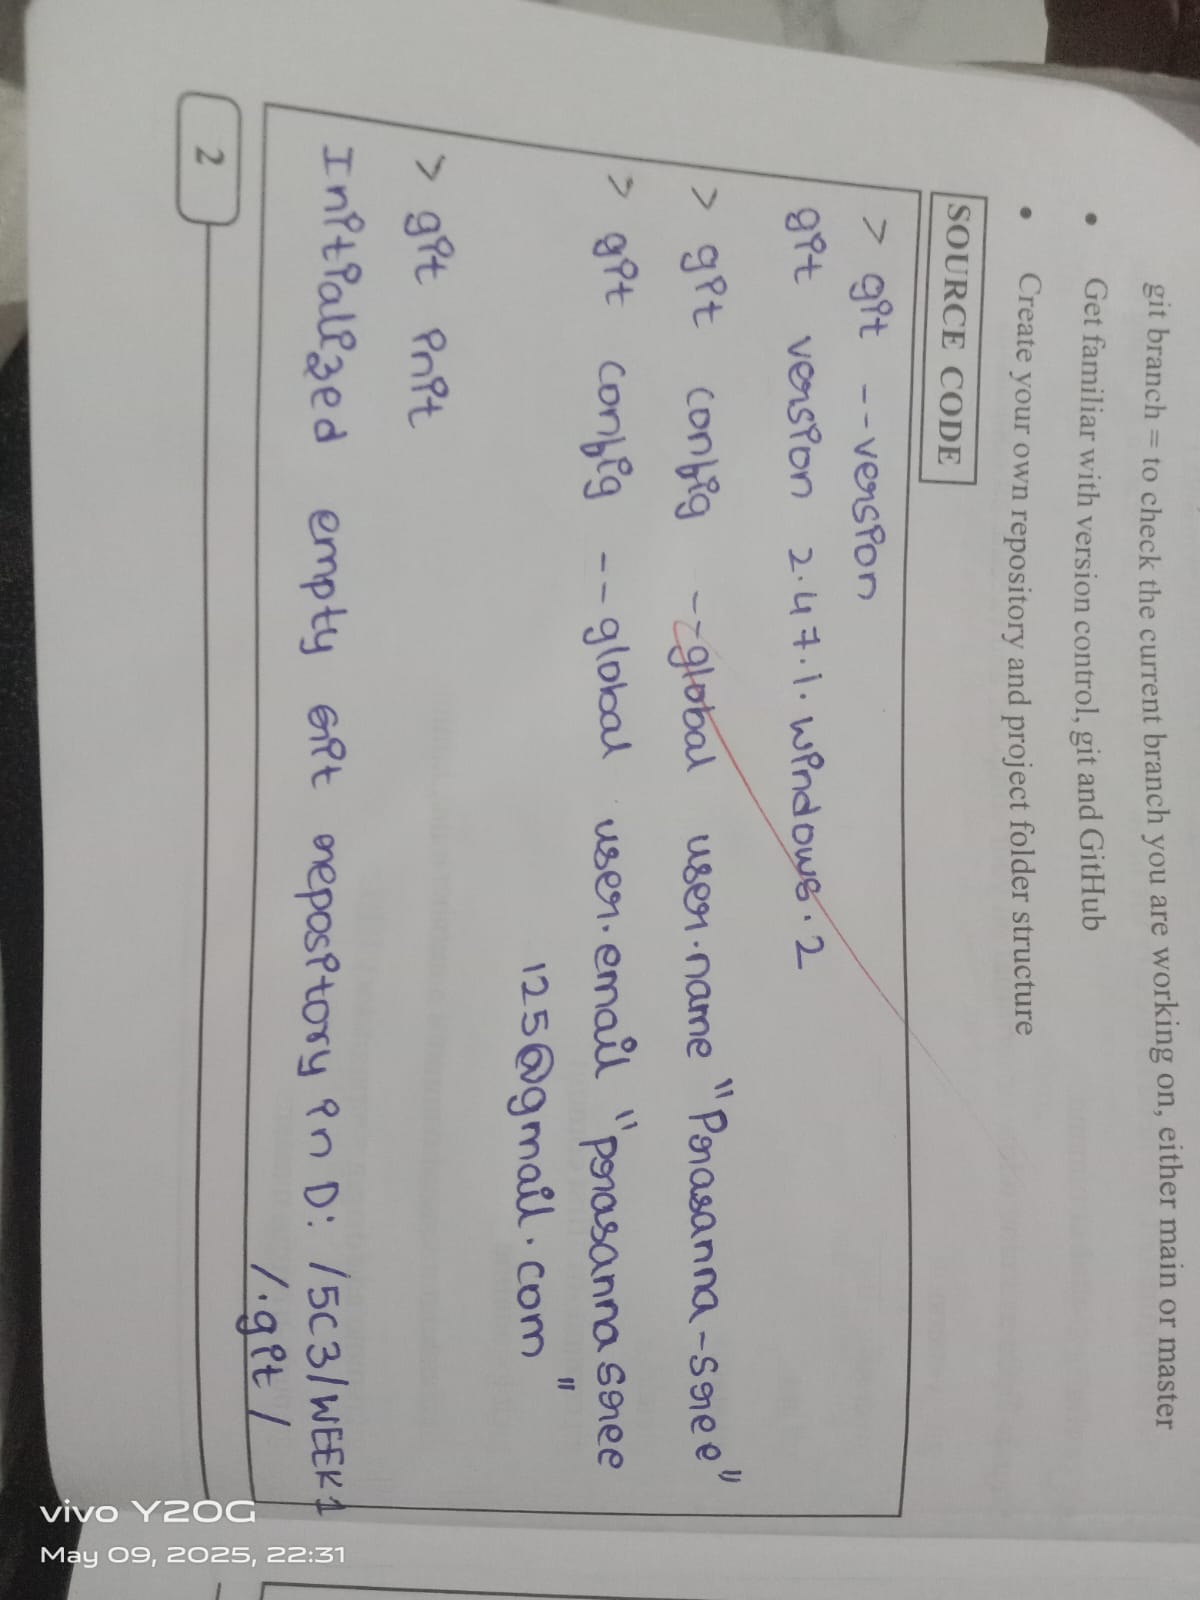 git branch = to check the current branch you are working on, either main or master
• Get familiar with version control, git and GitHub
• Create your own repository and project folder structure
SOURCE CODE
> git --version
git version 2.47.1.windows.2
> git config --global user.name "Prasanna-sree"
> git config --global user.email "prasannasree
125@gmail.com"
> git init
Initialized empty Git repository in D:/5C3/WEEK1
/.git/
2
vivo Y20G
May 09, 2025, 22:31